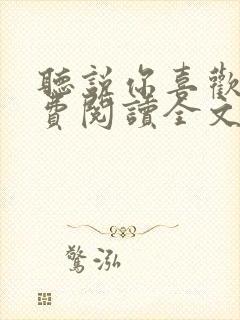 聽說你喜歡
費閱讀全文
驚泓